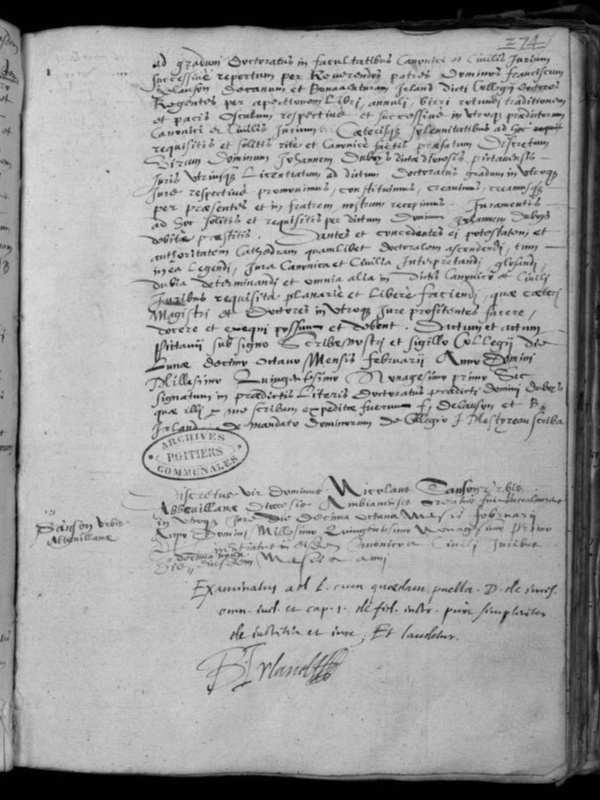 274
ad gradum Doctoratus in facultatibus Canonici et Civilis Jurium
successive repertum per Reverendos patres Dominos franciscum
Delauson Decanum et Bonaventuram Irland dicti Collegii Doctores
Regentes per apertionem Libri, annuli, birri rotundi traditionem
et pacis osculum respective et successive in utroque prædictorum
Canonici et Civilis Jurium. Cæterisque solennitatibus ad hoc
requisitis et solitis rite et Canonice factis præfatum Discretum
Virum Dominum Johannem Duboys dictæ diocesis pictaviensis
Juris Utriusque Licentiatum ad dictum Doctoratus gradum in utroque
Jure respective promovimus, constituimus, creavimus, creamusque
per præsentes et in fratrem nostrum recepimus. Juramentis
ad hoc solitis et requisitis per dictum Dominum Johannem Duboys
debite præstitis. Dantes et concedentes ei potestatem et
authoritatem Cathedram quamlibet doctoralem ascendendi, tum
in ea Legendi, Jura Canonica et Civilia Interpretandi, glosandi,
dubia determinandi et omnia alia in dictis Canonico et Civili
Juribus requisita planarie et Libere faciendi, quæ cæteri
Magistri et Doctores in utroque Jure profitentes facere,
docere et exequi possunt et debent. Datum et actum
Pictavii sub signo Scribæ nostri et sigillo Collegii die
Lunæ decimo octavo Mensis februarii Anno Domini
Millesimo Quingentesimo Nonagesimo primo Sic
signatum in prædictis Literis Doctoratus prædicti domini Duboys
quæ illi per me scribam expeditæ fuerunt f. Delauson et B.
Irland. de mandato dominorum de Collegio J Mestyreau scriba
ARCHIVES
POITIERS
COMMUNALES
Sanson Urbis
Abbevillanæ
Discretus vir Dominus Nicolaus Sanson Urbis
Abbevillanæ Diocesis Ambianensis creatus fuit Baccalaureus
in utroque Jure Die Decima octava Mensis februarii
Anno Domini Millesimo Quingentesimo Nonagesimo Primo
Canonico Civili Juribus
Die decima nona ejusdem Mensis anni
Examinatus ad L. cum quædam puella. D. de iuris.
omn. iud. et cap. 1. de fid. instr. pure simpliciter
de iustitia et iure, Et laudetur.
B Irland